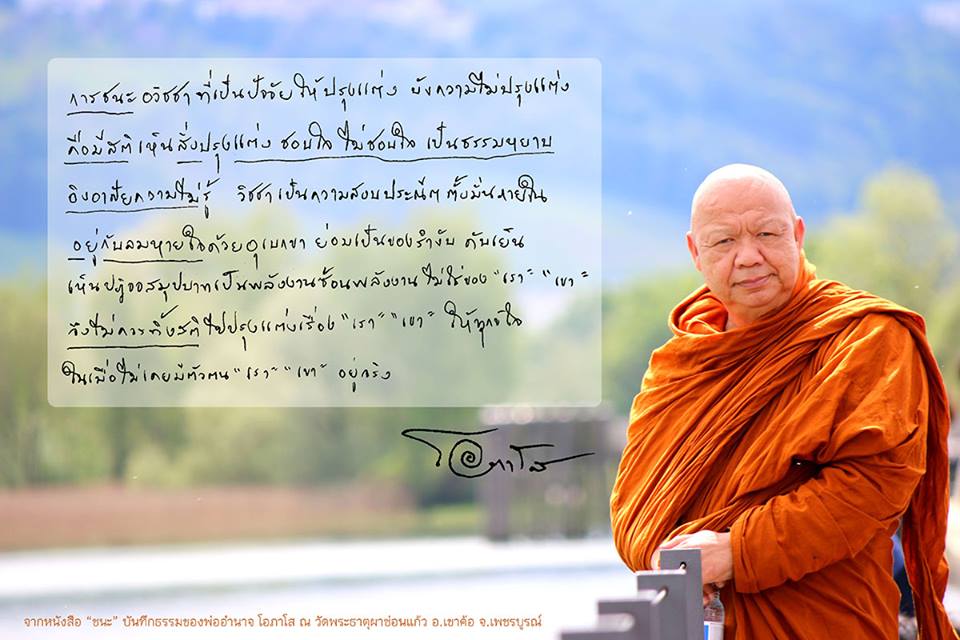 การชนะอวิชชา ที่เป็นปัจจัยให้ปรุงแต่ง ยังความไม่ปรุงแต่ง
คือมีสติ เห็นสิ่งปรุงแต่ง ชอบใจ ไม่ชอบใจ เป็นธรรมหยาบ
อิงอาศัยความไม่รู้ วิชชา เป็นความสงบประณีต ตั้งมั่นภายใน
อยู่กับลมหายใจด้วยอุเบกขา ย่อมเป็นของรำงับ ดับเย็น
เห็นปฏิจจสมุปบาทเป็นพลังงานซ้อนพลังงาน ไม่ใช่ของ "เรา" "เขา"
จึงไม่ควรทิ้งสติไปปรุงแต่งเรื่อง "เรา" "เขา" ให้ทุกข์ใจ
ในเมื่อไม่เคยมีตัวตน "เรา" "เขา" อยู่จริง
โอภาโส
จากหนังสือ "ชนะ" บันทึกธรรมของพ่ออำนาจ โอภาโส ณ วัดพระธาตุผาซ่อนแก้ว อ.เขาค้อ จ.เพชรบูรณ์